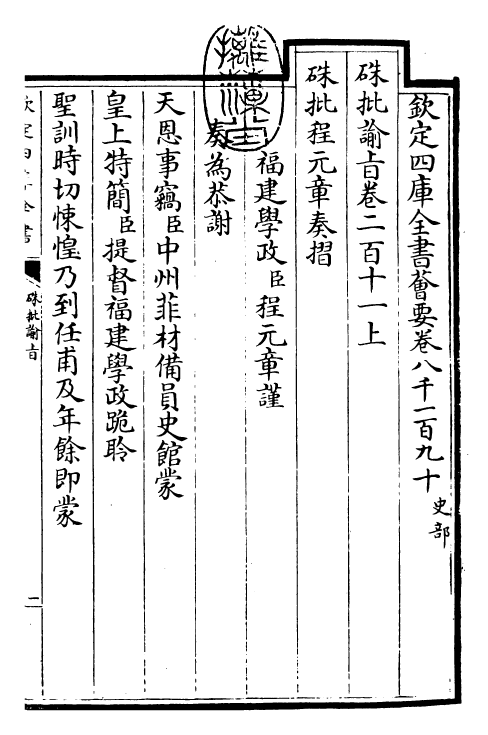 欽定四庫全書薈要卷八千一百九十 史部
硃批諭旨卷二百十一上
硃批程元章奏摺
福建學政臣程元章謹
奏為恭謝
天恩事竊臣中州菲材備員史館蒙
皇上特簡臣提督福建學政跪聆
聖訓時切悚惶乃到任甫及年餘即蒙
欽定四庫全書
硃批諭旨